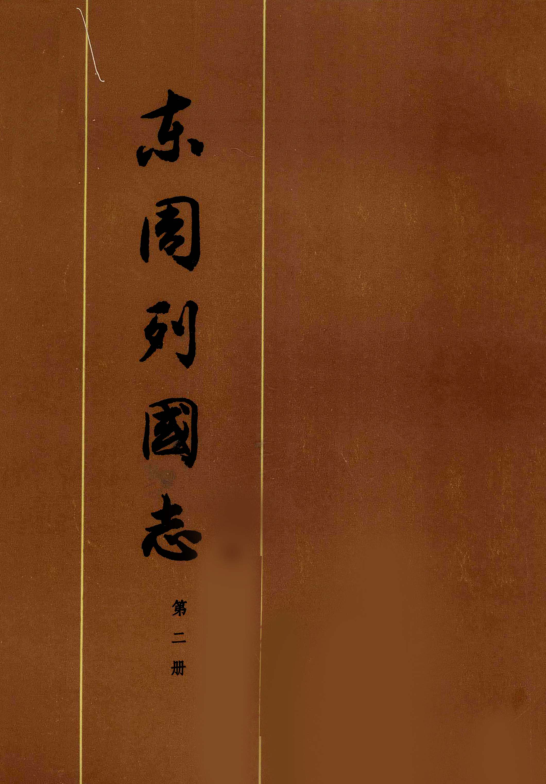 东周列國志
第二册